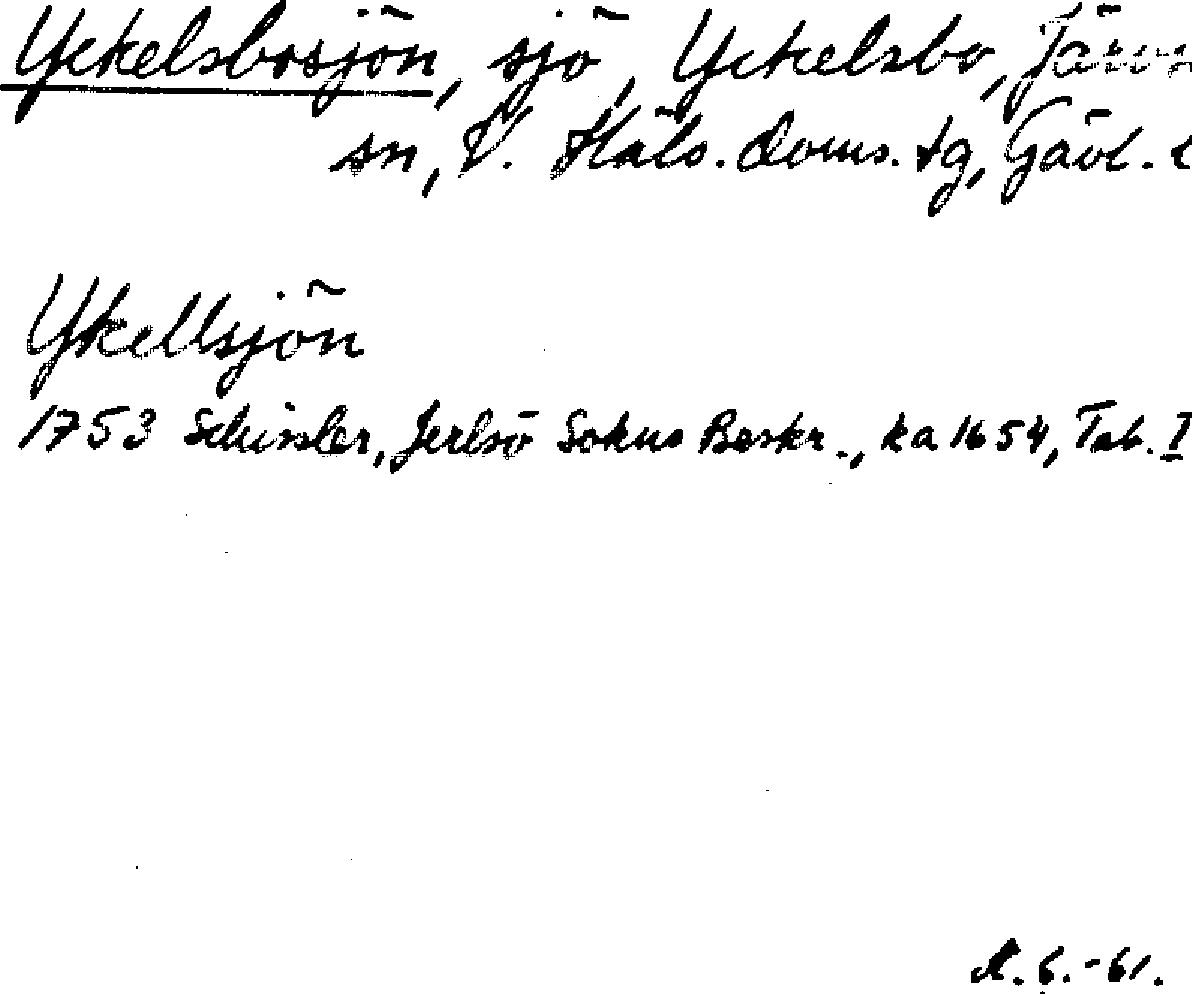 Yckelsbosjön, sjö, Yckelsbo, Järvs
sn, V. Häls. doms. tg, Gävl. l
Ykellsjön
1753 Schissler, Jerlsö Sokns Beskr., ka 1654, Tab. I
6.-61.